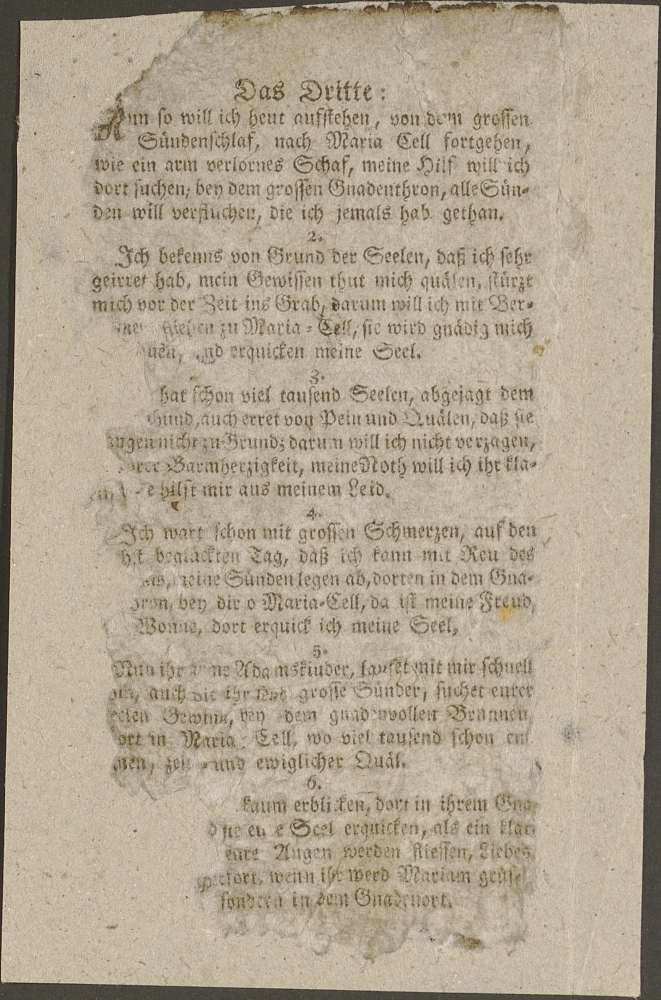 Das Dritte:
Nun so will ich heut aufstehen, von dem grossen
Sündenschlaf, nach Maria Cell fortgehen,
wie ein arm verlornes Schaf, meine Hilf will ich
dort suchen; bey dem grossen Gnadenthron, alle Sün-
den will verfluchen, die ich jemals hab gethan.
2.
Ich bekenns von Grund der Seelen, daß ich sehr
geirret hab, mein Gewissen thut mich quälen, stürzt
mich vor der Zeit ins Grab, darum will ich mit Ver-
zu Maria-Cell, sie wird gnädig mich
erquicken meine Seel.
3.
hat schon viel tausend Seelen, abgejagt dem
hund, auch erret von Pein und Quälen, daß sie
nicht zu Grund; darum will ich nicht verzagen,
Barmherzigkeit, meine Noth will ich ihr kla-
hilft mir aus meinem Leid.
4.
Ich wart schon mit grossen Schmerzen, auf den
beglückten Tag, daß ich kann mit Reu des
meine Sünden legen ab, dorten in dem Gna-
bey dir o Maria-Cell, da ist meine Freud,
Wonne, dort erquick ich meine Seel,
5.
Nun ihr Adamskinder, laufet mit mir schnell
auch die ihr grosse Sünder, suchet eurer
Seelen Gewinn, bey dem gnadenvollen Brunnen,
dort in Maria Cell, wo viel tausend schon
und ewiglicher Quäl.
6.
kaum erblicken, dort in ihrem
eure Seel erquicken, als ein klar
eure Augen werden fliessen, Liebes
wenn ihr werd Mariam grüs-
sondern in dem Gnadenort.